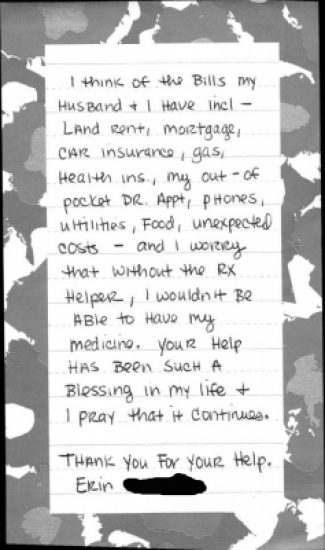 I think of the Bills my
Husband + I Have incl -
LAnd Rent, mortgage,
CAR insurance, gas,
Health ins., my out-of
pocket DR. Appt, pHones,
utilities, Food, unexpected
costs - and I worry
that without the RX
Helper, I wouldn't BE
ABle to Have my
medicine. your Help
HAS BEEN SUCH A
Blessing in my life +
I pray that it continues.
THANK you For your Help.
Erin